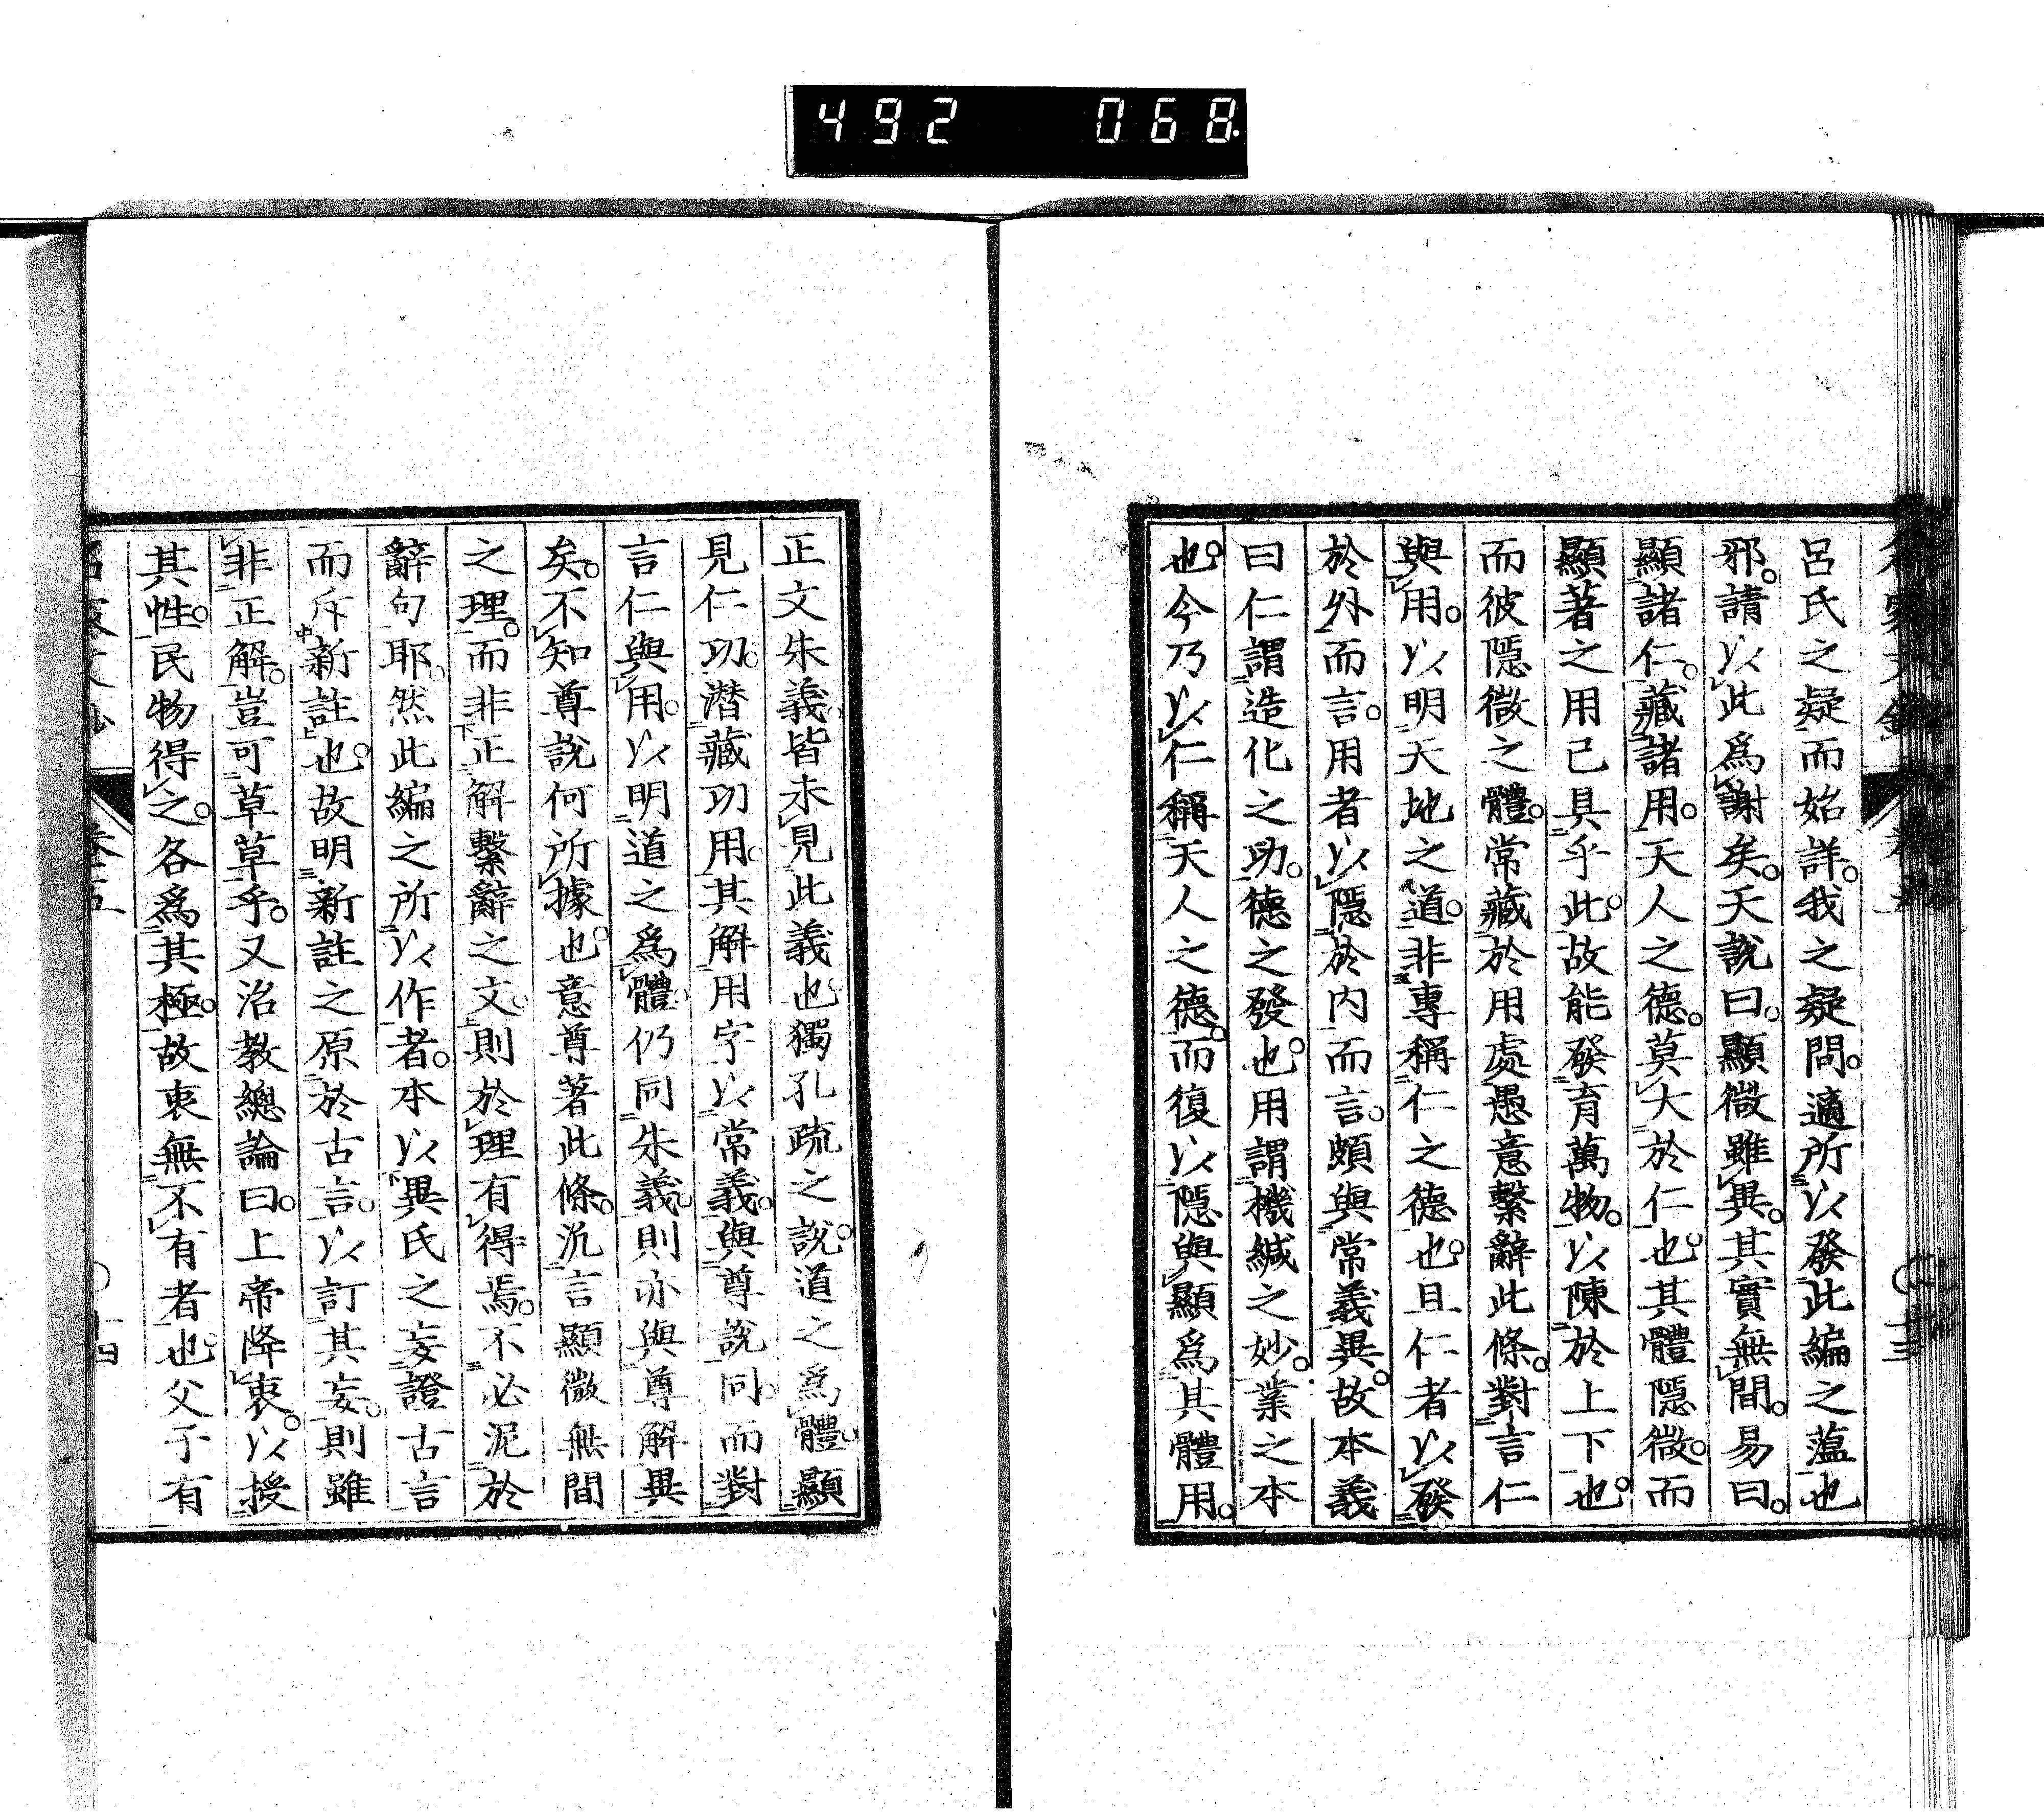 492 068
呂氏之疑而始詳。我之疑問。適所以發此編之薀也
邪。請以此爲謝矣。天說曰。顯微雖異。其實無間。易曰。
顯諸仁。藏諸用。天人之德。莫大於仁也。其體隱微。而
顯著之用已具乎此。故能發育萬物。以陳於上下也。
而彼隱微之體。常藏於用處愚意繫辭此條。對言仁
與用。以明天地之道。非專稱仁之德也。且仁者以發
於外而言。用者以隱於内而言。頗與常義異。故本義
曰仁謂造化之功。德之發也。用謂機緘之妙。業之本
也。今乃以仁稱天人之德。而復以隱與顯爲其體用。
正文朱義皆未見此義也獨孔疏之說。道之爲體。顯
見仁功。潛藏功用。其解用字以常義。與尊說同。而對
言仁與用。以明道之爲體。仍同朱義。則亦與尊解異
矣。不知尊說何所據也。意尊著此條。汎言顯微無間
之理。而非正解繫辭之文。則於理有得焉。不必泥於
辭句耶。然此編之所以作者。本以異氏之妄證古言
而斥新註也。故明新註之原於古言。以訂其妄。則雖
非正解。豈可草草乎。又治教總論曰。上帝降衷。以授
其性。民物得之。各爲其極。故衷無不有者也。父子有
卷五